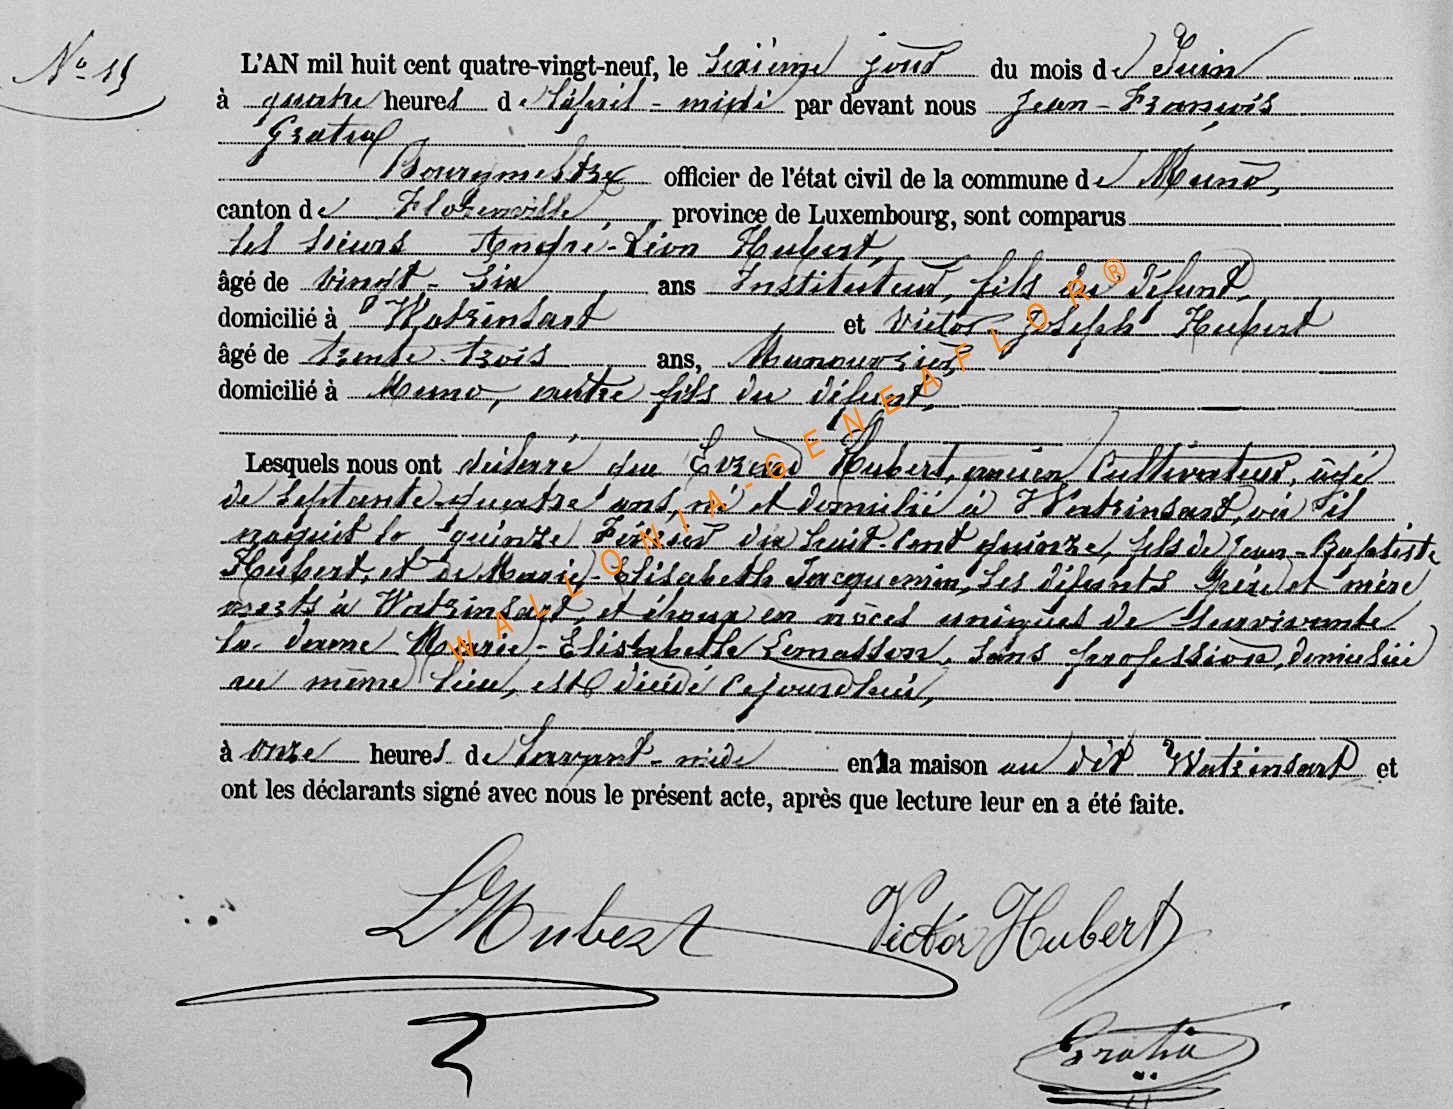 N° 11
L'AN mil huit cent quatre-vingt-neuf, le sixième jour du mois de Juin
à quatre heures de l'après-midi par devant nous Jean-François
Gratia
Bourgmestre officier de l'état civil de la commune de Muno,
canton de Florenville, province de Luxembourg, sont comparus
les sieurs André-Léon Hubert,
âgé de vingt-six ans Instituteur, fils du défunt,
domicilié à Watrinsart et Victor Joseph Hubert
âgé de trente-trois ans, Manouvrier
domicilié à Muno, autre fils du défunt,
Lesquels nous ont déclaré que Evrard Hubert, ancien Cultivateur, âgé
de septante-quatre ans, né et domicilié à Watrinsart, où il
naquit le quinze Février dix huit-cent quinze, fils de Jean-Baptiste
Hubert, et de Marie-Elisabeth Jacquemin, les défunts père et mère
morts à Watrinsart, et époux en nôces uniques de survivante
la dame Marie-Elisabethe Lemasson, sans profession, domiciliée
au même lieu, est décédé cejourd'hui,
à onze heures de l'avant-midi en la maison au dit Watrinsart et
ont les déclarants signé avec nous le présent acte, après que lecture leur en a été faite.
LHubert Victor Hubert
Gratia
WALLONIA-GENEAFLOR®